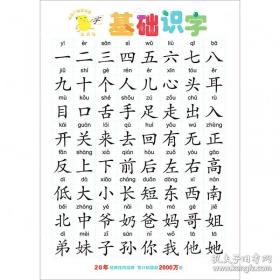 基础识字
yī èr sān sì wǔ liù qī bā
一 二 三 四 五 六 七 八
jiǔ shí gè rén ér xīn tóu ěr
九 十 个 人 儿 心 头 耳
mù kǒu shé shǒu zú zǒu chū rù
目 口 舌 手 足 走 出 入
kāi guān lái qù huí yǒu wú zhèng
开 关 来 去 回 有 无 正
fǎn shàng xià qián hòu zuǒ yòu gāo
反 上 下 前 后 左 右 高
dī dà xiǎo cháng duǎn dōng xī nán
低 大 小 长 短 东 西 南
běi zhōng yé nǎi bà mā gē jiě
北 中 爷 奶 爸 妈 哥 姐
dì mèi zǐ sūn nǐ wǒ tā tā
弟 妹 子 孙 你 我 他 她
20年 2000万